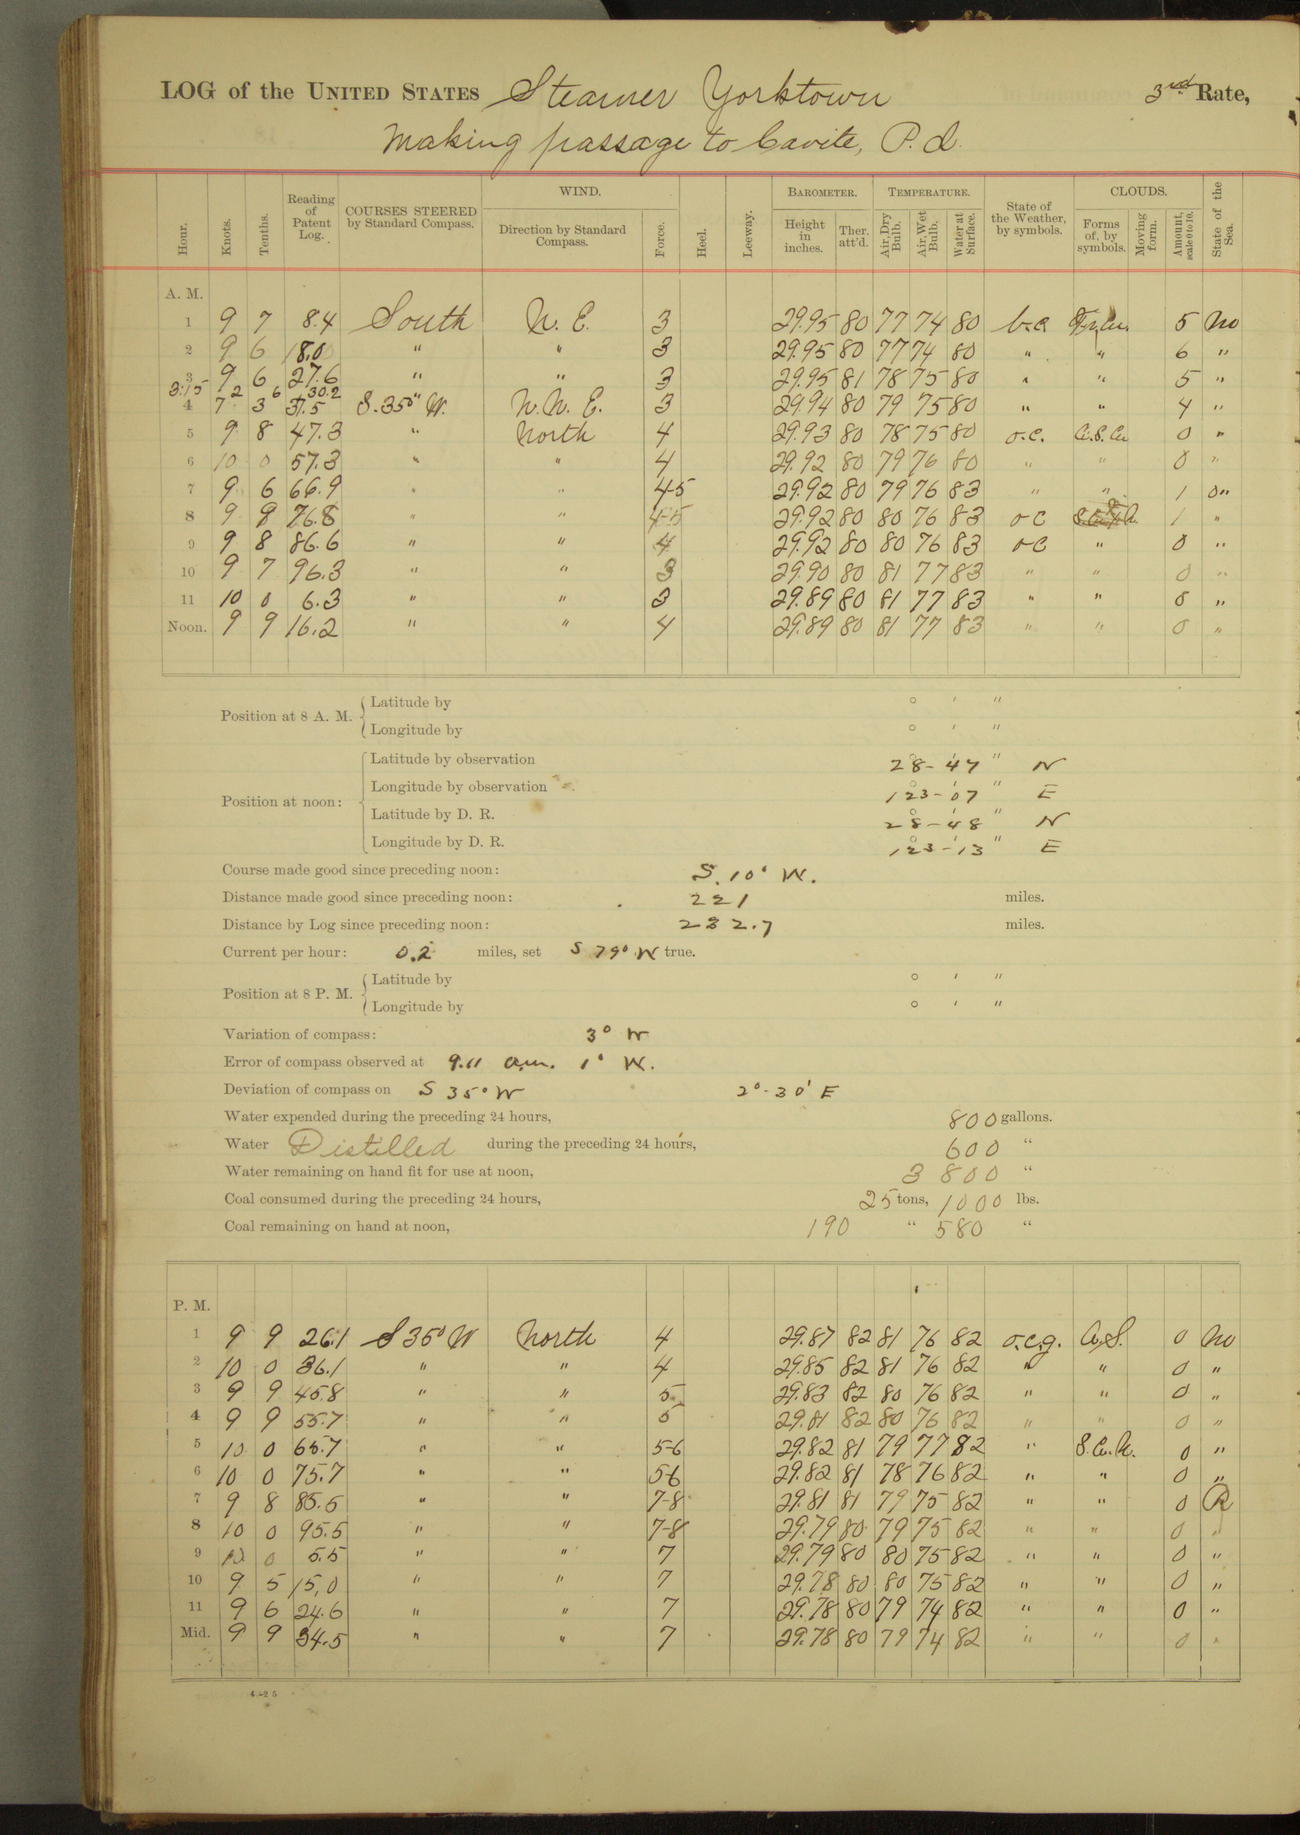 LOG of the UNITED STATES Steamer Yorktown 3rd Rate,
Making passage to Cavite, P. I.
Hour. Knots. Tenths. Reading of Patent Log. COURSES STEERED by Standard Compass. WIND. Direction by Standard Compass. Force. Heel. Leeway. BAROMETER. Height in inches. Ther. att'd. TEMPERATURE. Air, Dry Bulb. Air, Wet Bulb. Water at Surface. State of the Weather, by symbols. CLOUDS. Forms of, by symbols. Moving form. Amount, scale 0 to 10. State of the Sea.
A. M.
1 9 7 8.4 South N. E. 3 29.95 80 77 74 80 b.c. 5 No
2 9 6 18.0 " " 3 29.95 80 77 74 80 " " 6 "
3 9 6 27.6 " " 3 29.95 81 78 75 80 " " 5 "
3:15 2 6 30.2
4 7 3 37.5 S. 35° W. N. N. E. 3 29.94 80 79 75 80 " " 4 "
5 9 8 47.3 " North 4 29.93 80 78 75 80 o.c. Ci.S.Cu 0 "
6 10 0 57.3 " " 4 29.92 80 79 76 80 " " 0 "
7 9 6 66.9 " " 4-5 29.92 80 79 76 83 " " 1 "
8 9 9 76.8 " " 4-5 29.92 80 80 76 83 o c 1 "
9 9 8 86.6 " " 4 29.92 80 80 76 83 o c " 0 "
10 9 7 96.3 " " 3 29.90 80 81 77 83 " " 0 "
11 10 0 6.3 " " 3 29.89 80 81 77 83 " " 0 "
Noon. 9 9 16.2 " " 4 29.89 80 81 77 83 " " 0 "
Position at 8 A. M. Latitude by ° ' "
Longitude by ° ' "
Position at noon: Latitude by observation 28-47 " N
Longitude by observation 123-07 " E
Latitude by D. R. 28-48 " N
Longitude by D. R. 123-13 " E
Course made good since preceding noon: S. 10° W.
Distance made good since preceding noon: 221 miles.
Distance by Log since preceding noon: 232.7 miles.
Current per hour: 0.2 miles, set S 79° W true.
Position at 8 P. M. Latitude by ° ' "
Longitude by ° ' "
Variation of compass: 3° W
Error of compass observed at 9.11 a.m. 1° W.
Deviation of compass on S 35° W 2°-30' E
Water expended during the preceding 24 hours, 800 gallons.
Water Distilled during the preceding 24 hours, 600 "
Water remaining on hand fit for use at noon, 3 800 "
Coal consumed during the preceding 24 hours, 25 tons, 1000 lbs.
Coal remaining on hand at noon, 190 " 580 "
P. M.
1 9 9 26.1 S 35° W North 4 29.87 82 81 76 82 o.c.g. Ci.S. 0 No
2 10 0 36.1 " " 4 29.85 82 81 76 82 " " 0 "
3 9 9 45.8 " " 5 29.83 82 80 76 82 " " 0 "
4 9 9 55.7 " " 5 29.81 82 80 76 82 " " 0 "
5 10 0 65.7 " " 5-6 29.82 81 79 77 82 " S.Cu.N. 0 "
6 10 0 75.7 " " 5-6 29.82 81 78 76 82 " " 0 "
7 9 8 85.5 " " 7-8 29.81 81 79 75 82 " " 0 R
8 10 0 95.5 " " 7-8 29.79 80 79 75 82 " " 0 "
9 10 0 5.5 " " 7 29.79 80 80 75 82 " " 0 "
10 9 5 15.0 " " 7 29.78 80 80 75 82 " " 0 "
11 9 6 24.6 " " 7 29.78 80 79 74 82 " " 0 "
Mid. 9 9 34.5 " " 7 29.78 80 79 74 82 " " 0 "